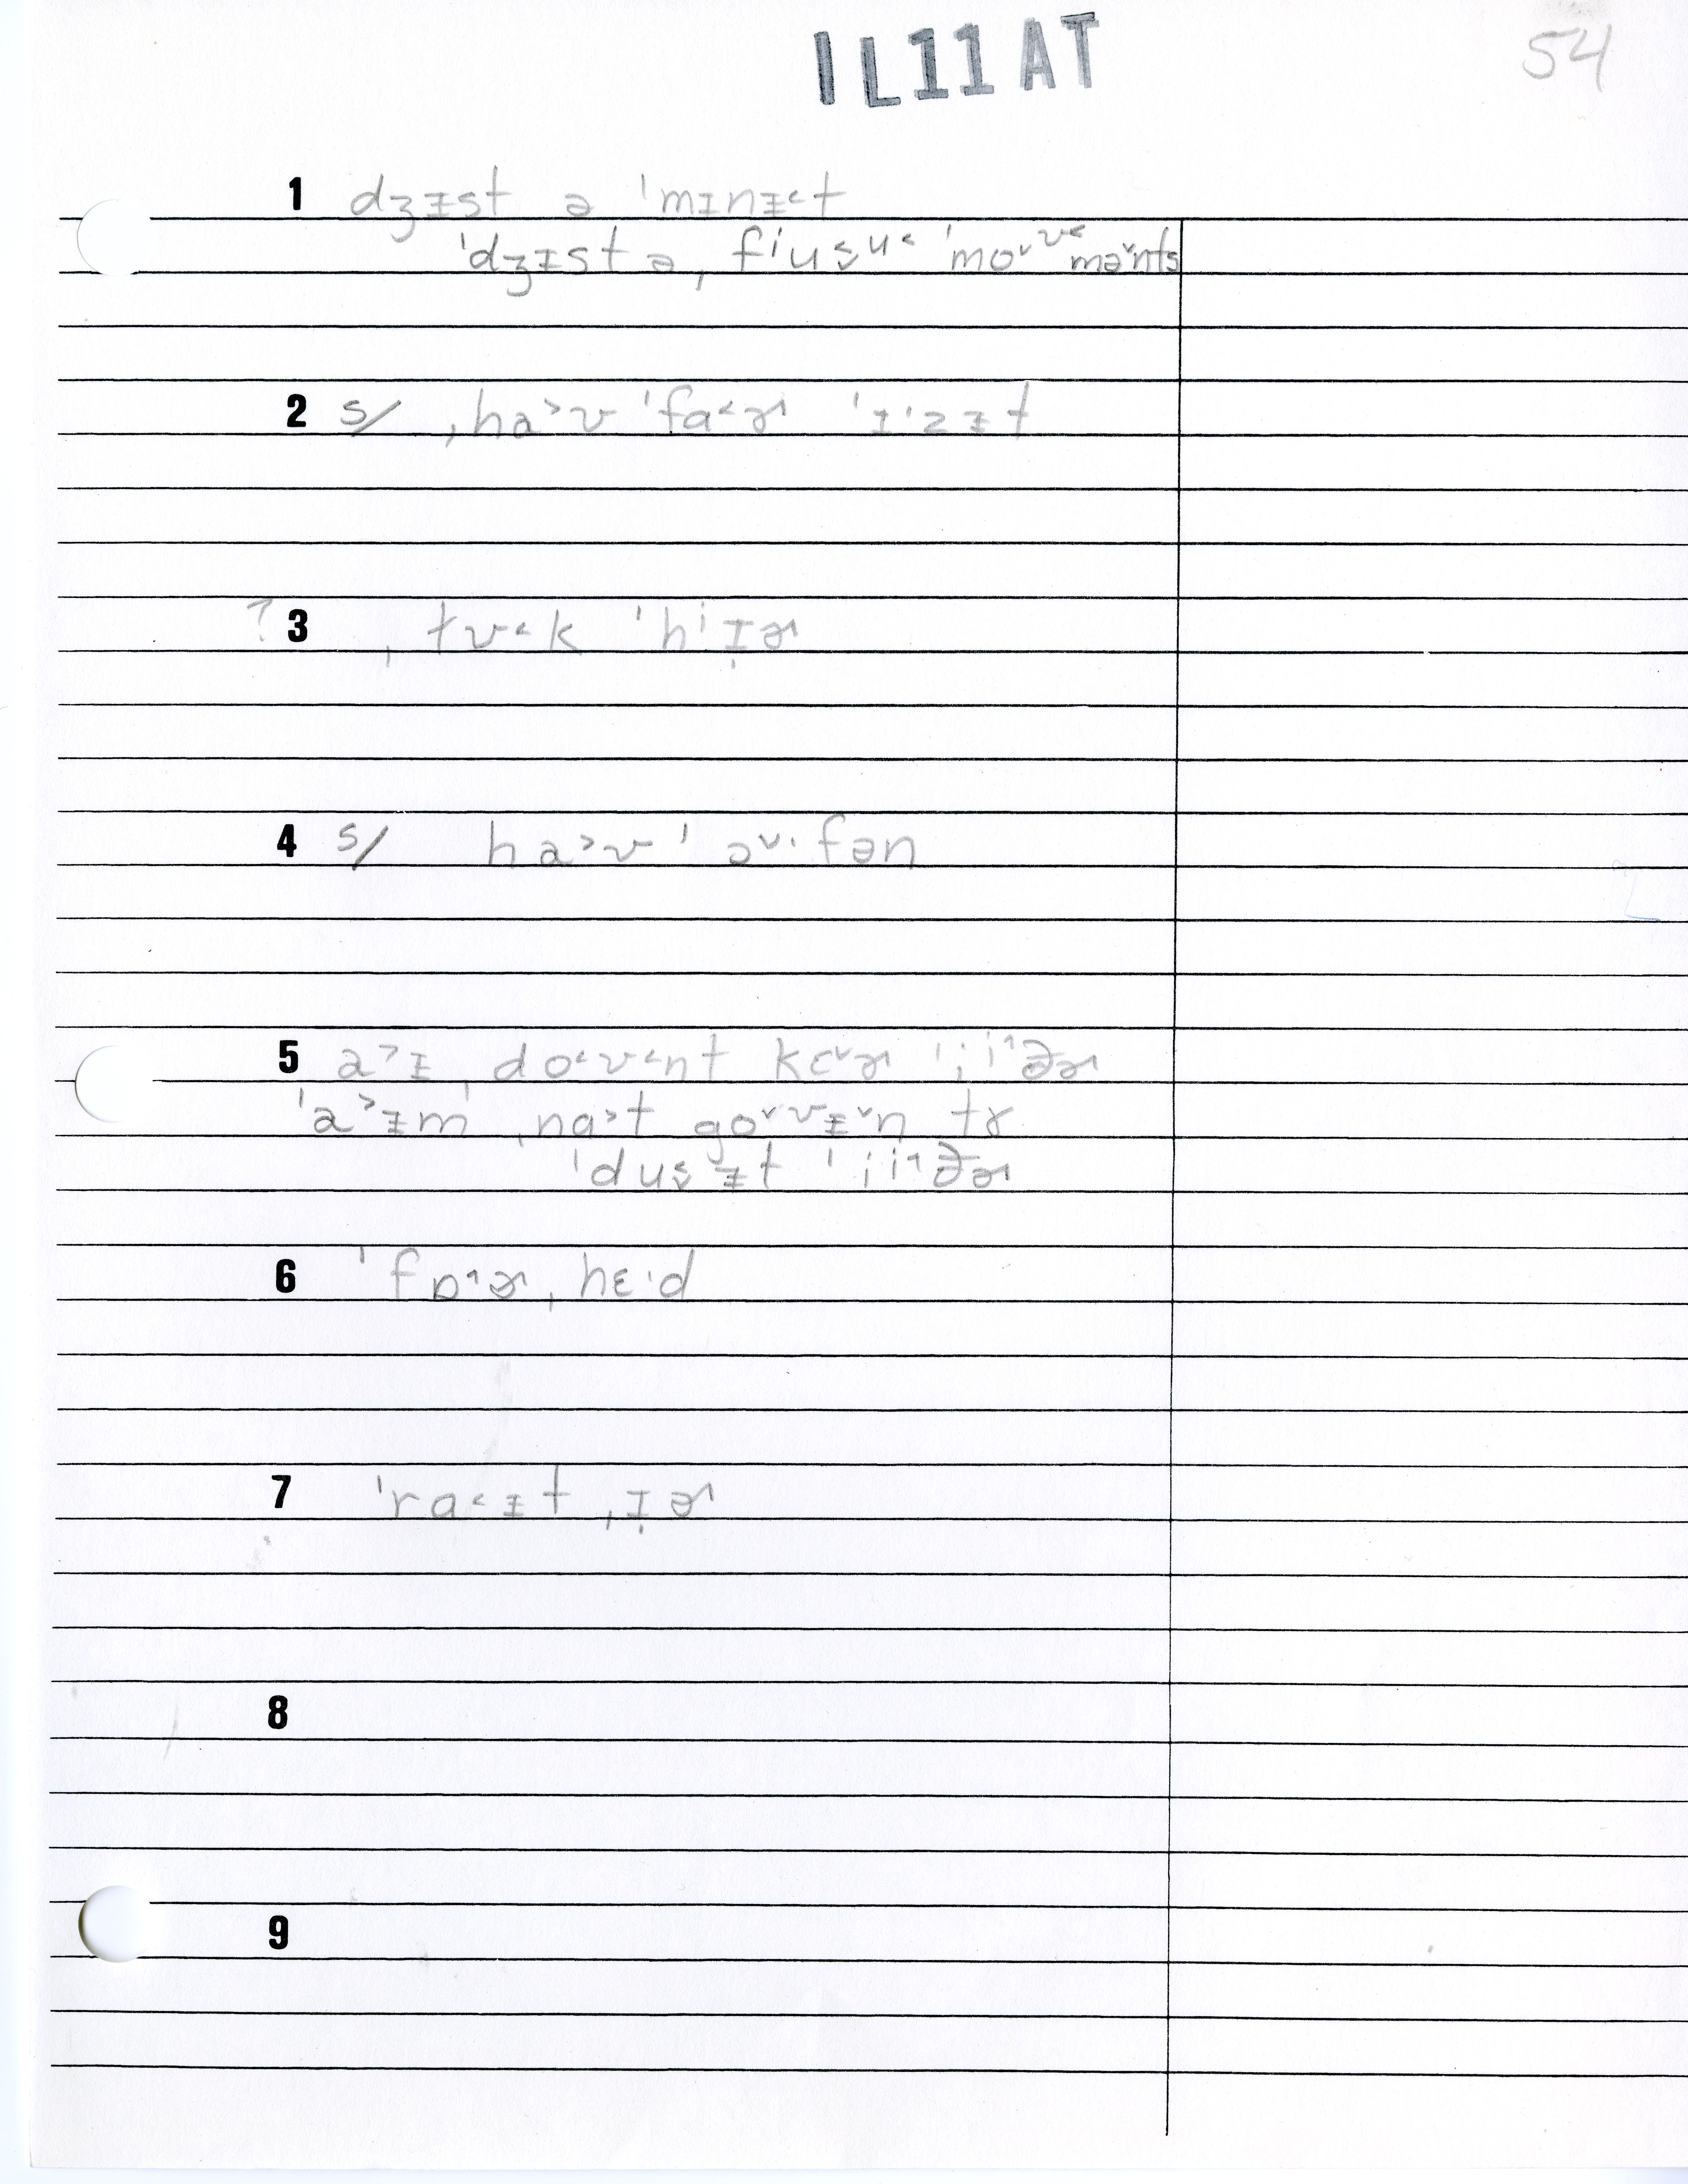 IL11AT
54
1 dʒᵻst ə ˈmɪnᵻ˂t
ˈdʒᵻst ə ˌfⁱus̬u˂ ˈmo˅ʊ˂mə˅nts
2 s/ ˌha˃ʊ ˈfa˂ɚ ˈɪˑzᵻt
? 3 ˌtʊ˂k ˈhⁱɪ̣ɚ
4 s/ ha˃ʊ ˈɔ˅ˑfən
5 a˃ᵻ ˌdo˂ʊ˂nt kɛ˅ɚ ˈi̡i˄ðɚ
ˈa˃ᵻm ˌnɑ˃t go˅ʊᵻ˅n tɤ
ˈdus̬ᵻt ˈi̡i˄ðɚ
6 ˈfɒ˄ɚˌhɛˑd
7 ˈra˂ᵻt ˌɪ̣ɚ
8
9